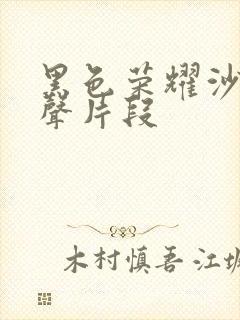 黑色荣耀沙
聲片段
木村慎吾 江坂